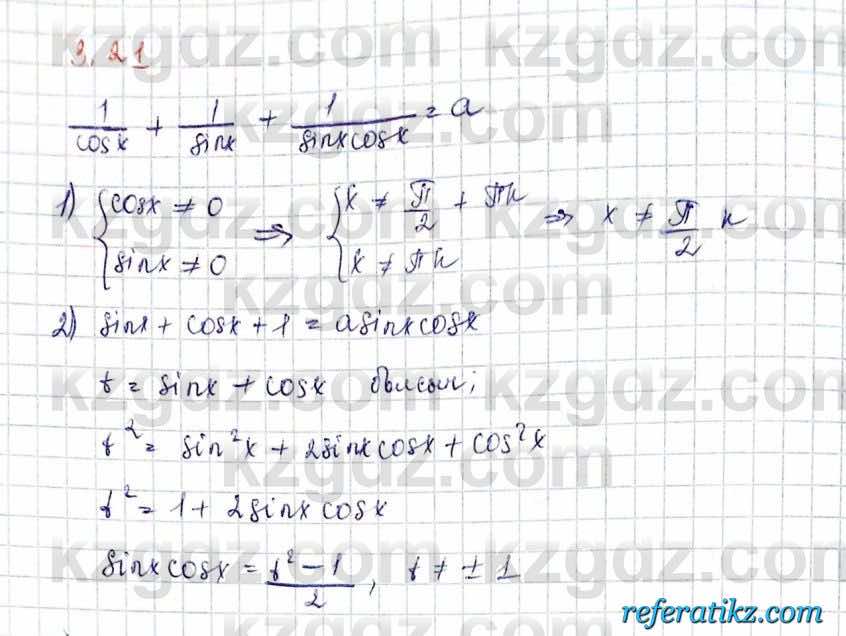 3.21
1/cosx + 1/sinx + 1/sinxcosx = a
1) {cosx ≠ 0 ⇒ {x ≠ π/2 + πk ⇒ x ≠ π/2 k
{sinx ≠ 0 {x ≠ πk
2) sinx + cosx + 1 = a sinxcosx
t = sinx + cosx болсын;
t² = sin²x + 2sinxcosx + cos²x
t² = 1 + 2sinxcosx
sinxcosx = t² - 1/2, t ≠ ± 1
kzgdz.com
referatikz.com